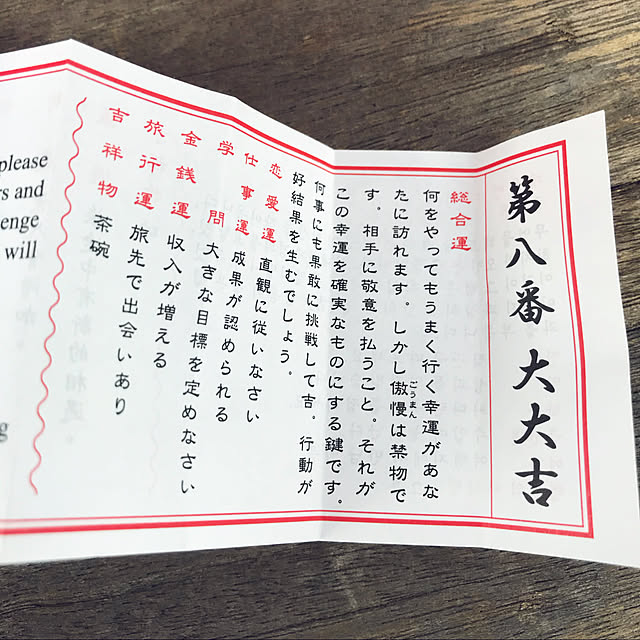 第八番 大大吉
総合運
何をやってもうまく行く幸運があな
たに訪れます。しかし傲慢は禁物で
ごうまん
す。相手に敬意を払うこと。それが
この幸運を確実なものにする鍵です。
何事にも果敢に挑戦して吉。行動が
好結果を生むでしょう。
恋愛運 直観に従いなさい
仕事運 成果が認められる
学問 大きな目標を定めなさい
金銭運 収入が増える
旅行運 旅先で出会いあり
吉祥物 茶碗
please
rs and
enge
will
g